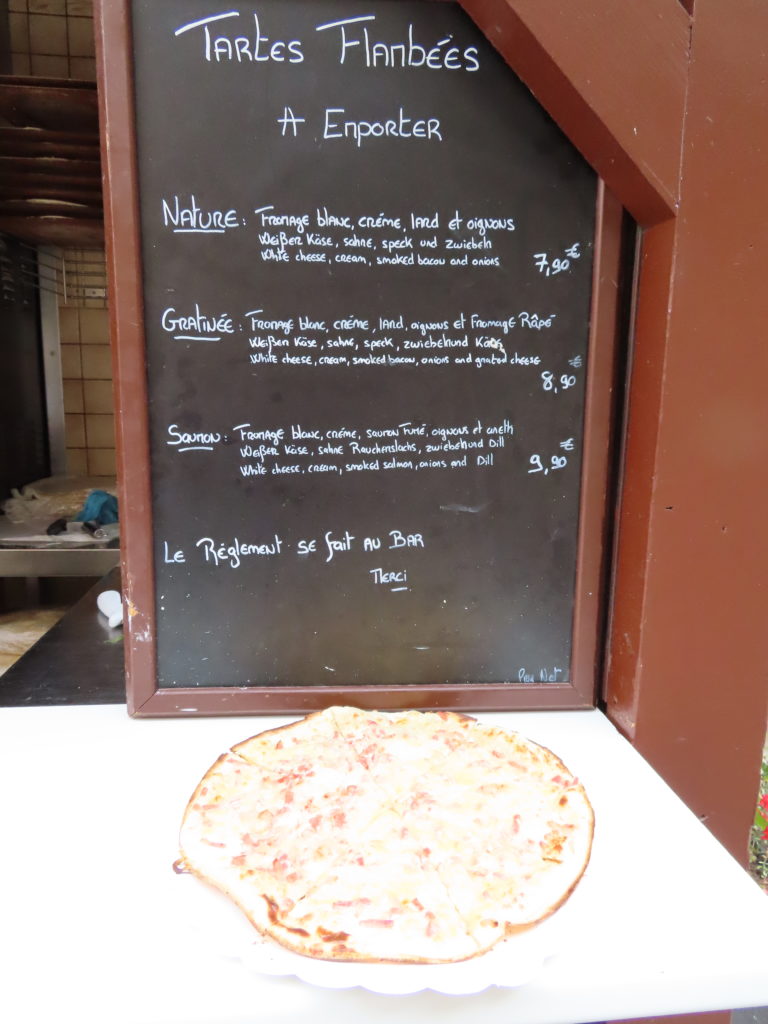 Tartes Flambées
A Emporter
Nature : Fromage blanc, créme, lard et oignons
Weißer Käse, sahne, speck und zwiebeln
White cheese, cream, smoked bacou and onions
7,90 €
Gratinée : Fromage blanc, créme, lard, oignons et Fromage Râpé
Weißen Käse, sahne, speck, zwiebelnund Käse
White cheese, cream, smoked bacon, onions and grated cheese
8,90 €
Saumon : Fromage blanc, créme, saumon Fumé, oignons et aneth
Weißer Käse, sahne Raucherslachs, zwiebelnund Dill
White cheese, cream, smoked salmon, onions and Dill
9,90 €
Le Réglement se fait au Bar
Merci
Prix Net